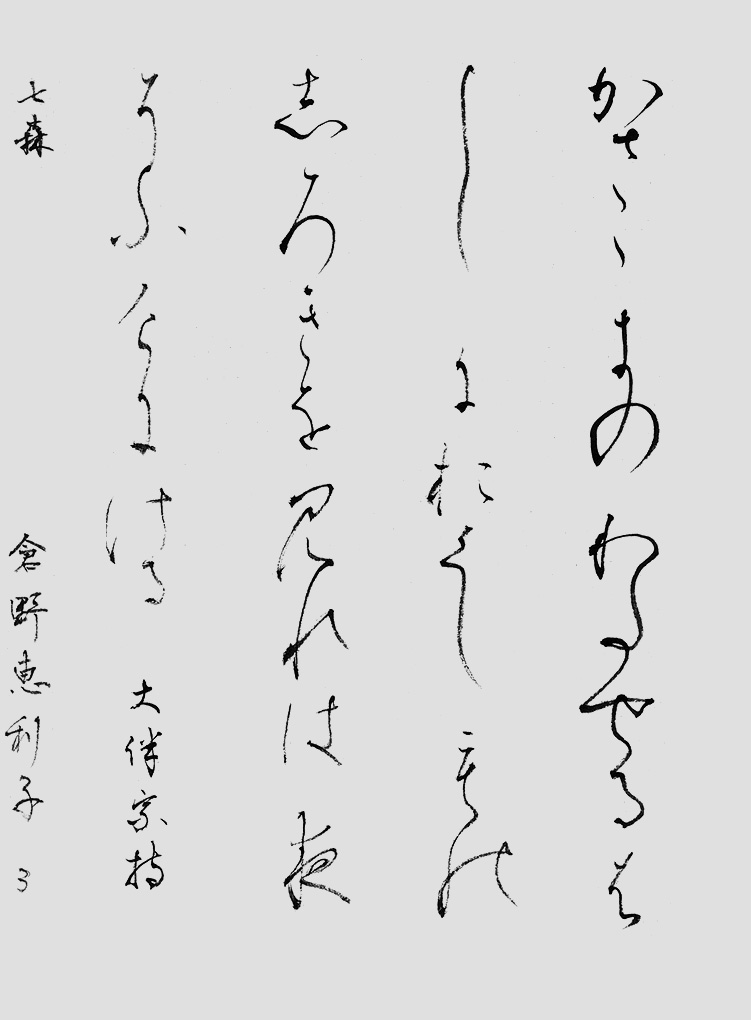 かさゝきのわたせるは
しにおくしもの
しろきを見れは夜
そふけにける 大伴家持
七森 倉野恵利子 3